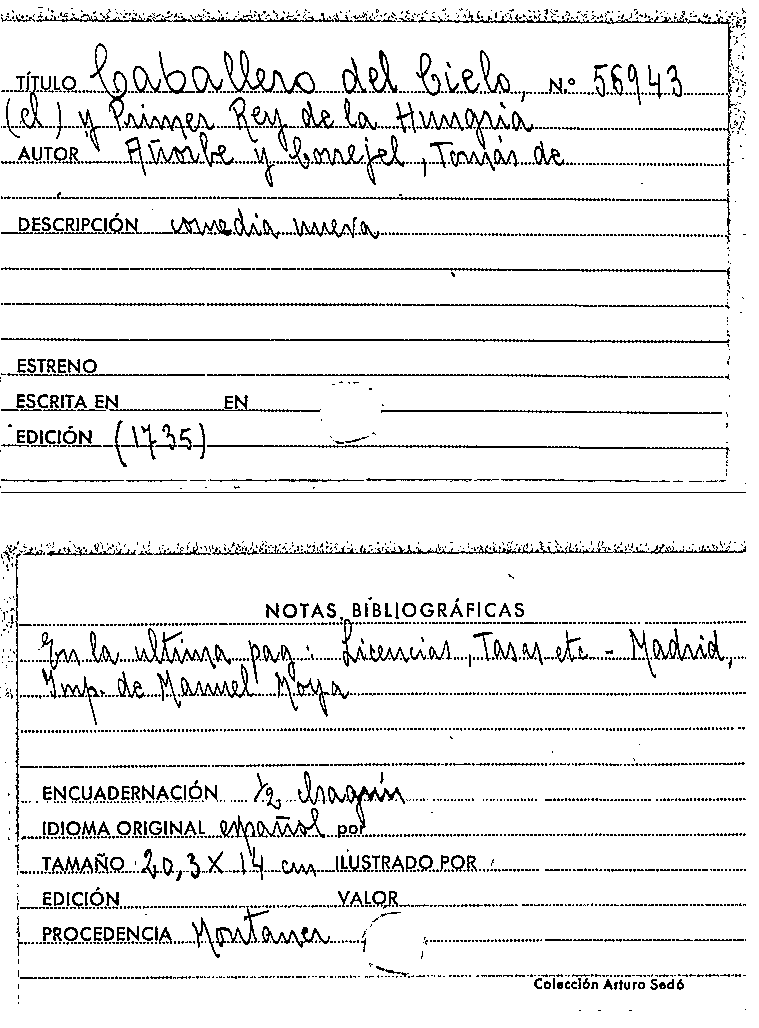 TÍTULO Caballero del Cielo, N.º 56943
(el) y Primer Rey de la Hungria
AUTOR Añorbe y Correjel, Tomás de
DESCRIPCIÓN comedia nueva
ESTRENO
ESCRITA EN EN
EDICIÓN (1735)
NOTAS BIBLIOGRÁFICAS
En la ultima pag: Licencias, Tasas etc - Madrid,
Imp. de Manuel Moya
ENCUADERNACIÓN 1/2 chagrín
IDIOMA ORIGINAL español por
TAMAÑO 20,3 X 14 cm ILUSTRADO POR
EDICIÓN VALOR
PROCEDENCIA Montaner
Colección Arturo Sedó